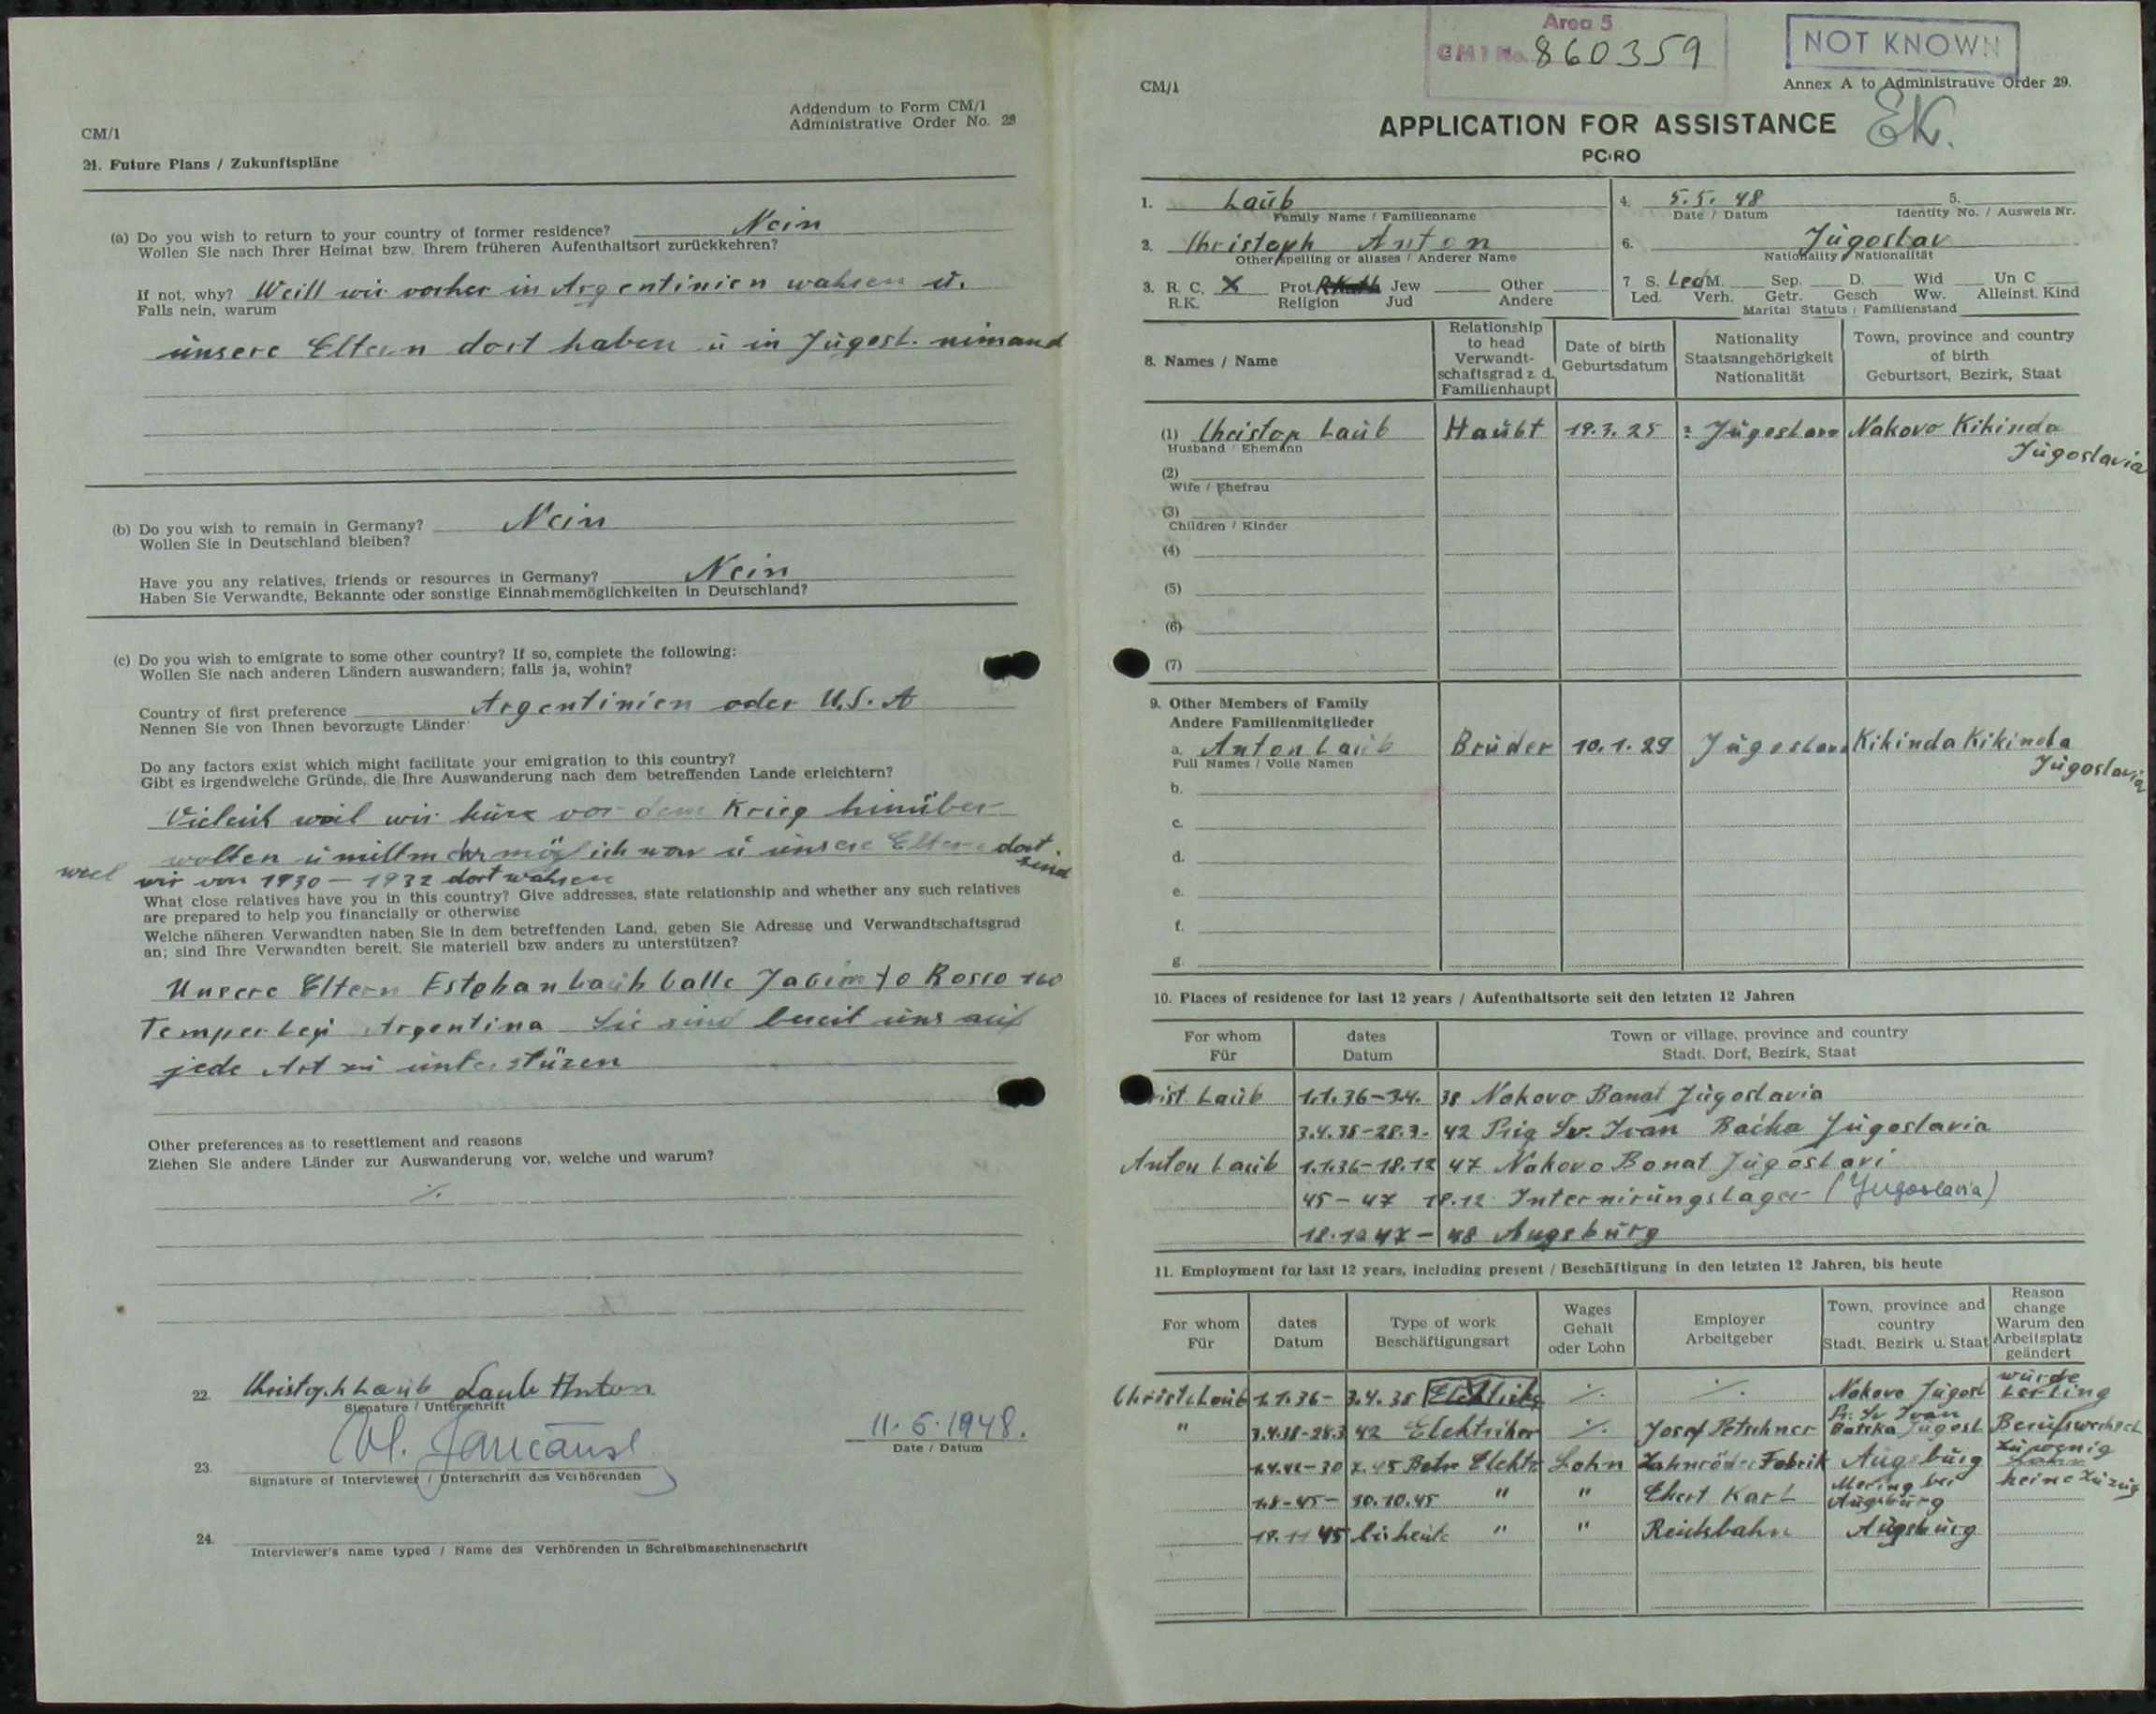 CM/1
Addendum to Form CM/1
Administrative Order No. 29
21. Future Plans / Zukunftspläne
(a) Do you wish to return to your country of former residence? Nein
Wollen Sie nach Ihrer Heimat bzw. Ihrem früheren Aufenthaltsort zurückkehren?
If not, why? Weill wir vorher in Argentinien wahsen u.
Falls nein, warum
unsere Eltern dort haben u in Jugosl. nimand
(b) Do you wish to remain in Germany? Nein
Wollen Sie in Deutschland bleiben?
Have you any relatives, friends or resources in Germany? Nein
Haben Sie Verwandte, Bekannte oder sonstige Einnahmemöglichkeiten in Deutschland?
(c) Do you wish to emigrate to some other country? If so, complete the following:
Wollen Sie nach anderen Ländern auswandern; falls ja, wohin?
Country of first preference Argentinien oder U.S.A
Nennen Sie von Ihnen bevorzugte Länder
Do any factors exist which might facilitate your emigration to this country?
Gibt es irgendwelche Gründe, die Ihre Auswanderung nach dem betreffenden Lande erleichtern?
weil wir kurz vor dem Krieg hinüber
wolten u unsere Eltern dort sind
weil wir von 1930 – 1932 dort wahsen
What close relatives have you in this country? Give addresses, state relationship and whether any such relatives
are prepared to help you financially or otherwise
Welche näheren Verwandten haben Sie in dem betreffenden Land, geben Sie Adresse und Verwandtschaftsgrad
an; sind Ihre Verwandten bereit, Sie materiell bzw. anders zu unterstützen?
Unsere Eltern Estehan Laub Calle Jacinto Rosso 160
Temperley Argentina Sie sind bereit uns auf
jede Art zu unterstüzen
Other preferences as to resettlement and reasons
Ziehen Sie andere Länder zur Auswanderung vor, welche und warum?
./.
22. Christoph Laub Laub Anton
Signature / Unterschrift
11.6.1948.
Date / Datum
23.
Signature of Interviewer / Unterschrift des Verhörenden
24.
Interviewer's name typed / Name des Verhörenden in Schreibmaschinenschrift
Area 5
CM1 No. 860359
NOT KNOWN
CM/1
Annex A to Administrative Order 29.
APPLICATION FOR ASSISTANCE EK.
PCIRO
1. Laub
Family Name / Familienname
4. 5.5.48 5.
Date / Datum Identity No. / Ausweis Nr.
2. Christoph Anton
Other spelling or aliases / Anderer Name
6. Jugoslav
Nationality / Nationalität
3. R. C. X Prot. Jew Other
R.K. Religion Jud Andere
7 S. Led M. Sep. D. Wid Un C
Led. Verh. Getr. Gesch Ww. Alleinst. Kind
Marital Status / Familienstand
8. Names / Name
Relationship to head Verwandt-schaftsgrad z. d. Familienhaupt
Date of birth Geburtsdatum
Nationality Staatsangehörigkeit Nationalität
Town, province and country of birth Geburtsort, Bezirk, Staat
(1) Christop Laub Haubt 19.3.25 Jugoslave Nakovo Kikinda Jugoslavia
Husband / Ehemann
(2)
Wife / Ehefrau
(3)
Children / Kinder
(4)
(5)
(6)
(7)
9. Other Members of Family
Andere Familienmitglieder
a. Anton Laub Bruder 10.1.29 Jugoslave Kikinda Kikinda Jugoslavia
Full Names / Volle Namen
b.
c.
d.
e.
f.
g.
10. Places of residence for last 12 years / Aufenthaltsorte seit den letzten 12 Jahren
For whom Für
dates Datum
Town or village, province and country Stadt, Dorf, Bezirk, Staat
rist Laub 1.1.36–3.4. 38 Nakovo Banat Jugoslavia
3.4.38–28.3. 42 Prig Sv. Ivan Bačka Jugoslavia
Anton Laub 1.1.36–18.12 47 Nakovo Banat Jugoslavi
45 – 47 18.12 Internirungslager (Jugoslavia)
18.12 47 – 48 Augsburg
11. Employment for last 12 years, including present / Beschäftigung in den letzten 12 Jahren, bis heute
For whom Für
dates Datum
Type of work Beschäftigungsart
Wages Gehalt oder Lohn
Employer Arbeitgeber
Town, province and country Stadt, Bezirk u. Staat
Reason change Warum den Arbeitsplatz geändert
Christ Laub 1.1.36– 3.4.38 ./. ./. Nakovo Jugosl wurde Lerling
" 3.4.38–28.3 42 Elektriker ./. Josef Petschner Pr. Sv Ivan Batska Jugosl Berufswechsel
1.4.42–30 7.45 Betr. Elektr Lohn Zahnräder Fabrik Augsburg zu wenig Lohn
1.8–45– 10.10.45 " " Ekert Karl Mering bei Augsburg keine Zuzug
19.11 45 bis heute " " Reichsbahn Augsburg